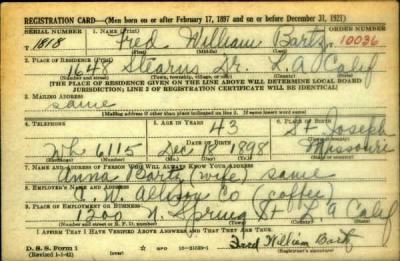 REGISTRATION CARD—(Men born on or after February 17, 1897 and on or before December 31, 1921)
SERIAL NUMBER 1. NAME (Print) ORDER NUMBER
1818 Fred William Bartz 10036
(First) (Middle) (Last)
2. PLACE OF RESIDENCE (Print)
1648 Stearns Dr. L.A. Calif
(Number and street) (Town, township, village, or city) (County) (State)
[THE PLACE OF RESIDENCE GIVEN ON THE LINE ABOVE WILL DETERMINE LOCAL BOARD
JURISDICTION; LINE 2 OF REGISTRATION CERTIFICATE WILL BE IDENTICAL]
3. MAILING ADDRESS
same
[Mailing address if other than place indicated on line 2. If same insert word same]
4. TELEPHONE 5. AGE IN YEARS 6. PLACE OF BIRTH
43 St Joseph
DATE OF BIRTH
Wh 6115 Dec 18 1898 Missouri
(Exchange) (Number) (Mo.) (Day) (Yr.) (State or country)
7. NAME AND ADDRESS OF PERSON WHO WILL ALWAYS KNOW YOUR ADDRESS
Anna Bartz (wife) same
8. EMPLOYER'S NAME AND ADDRESS
Co (coffee)
9. PLACE OF EMPLOYMENT OR BUSINESS
1200 N. Spring St L A Calif
(Number and street or R. F. D. number) (Town) (County) (State)
I AFFIRM THAT I HAVE VERIFIED ABOVE ANSWERS AND THAT THEY ARE TRUE.
D. S. S. Form 1
(Revised 1-1-42) GPO 16—21630-1 Fred William Bartz
(Registrant's signature)